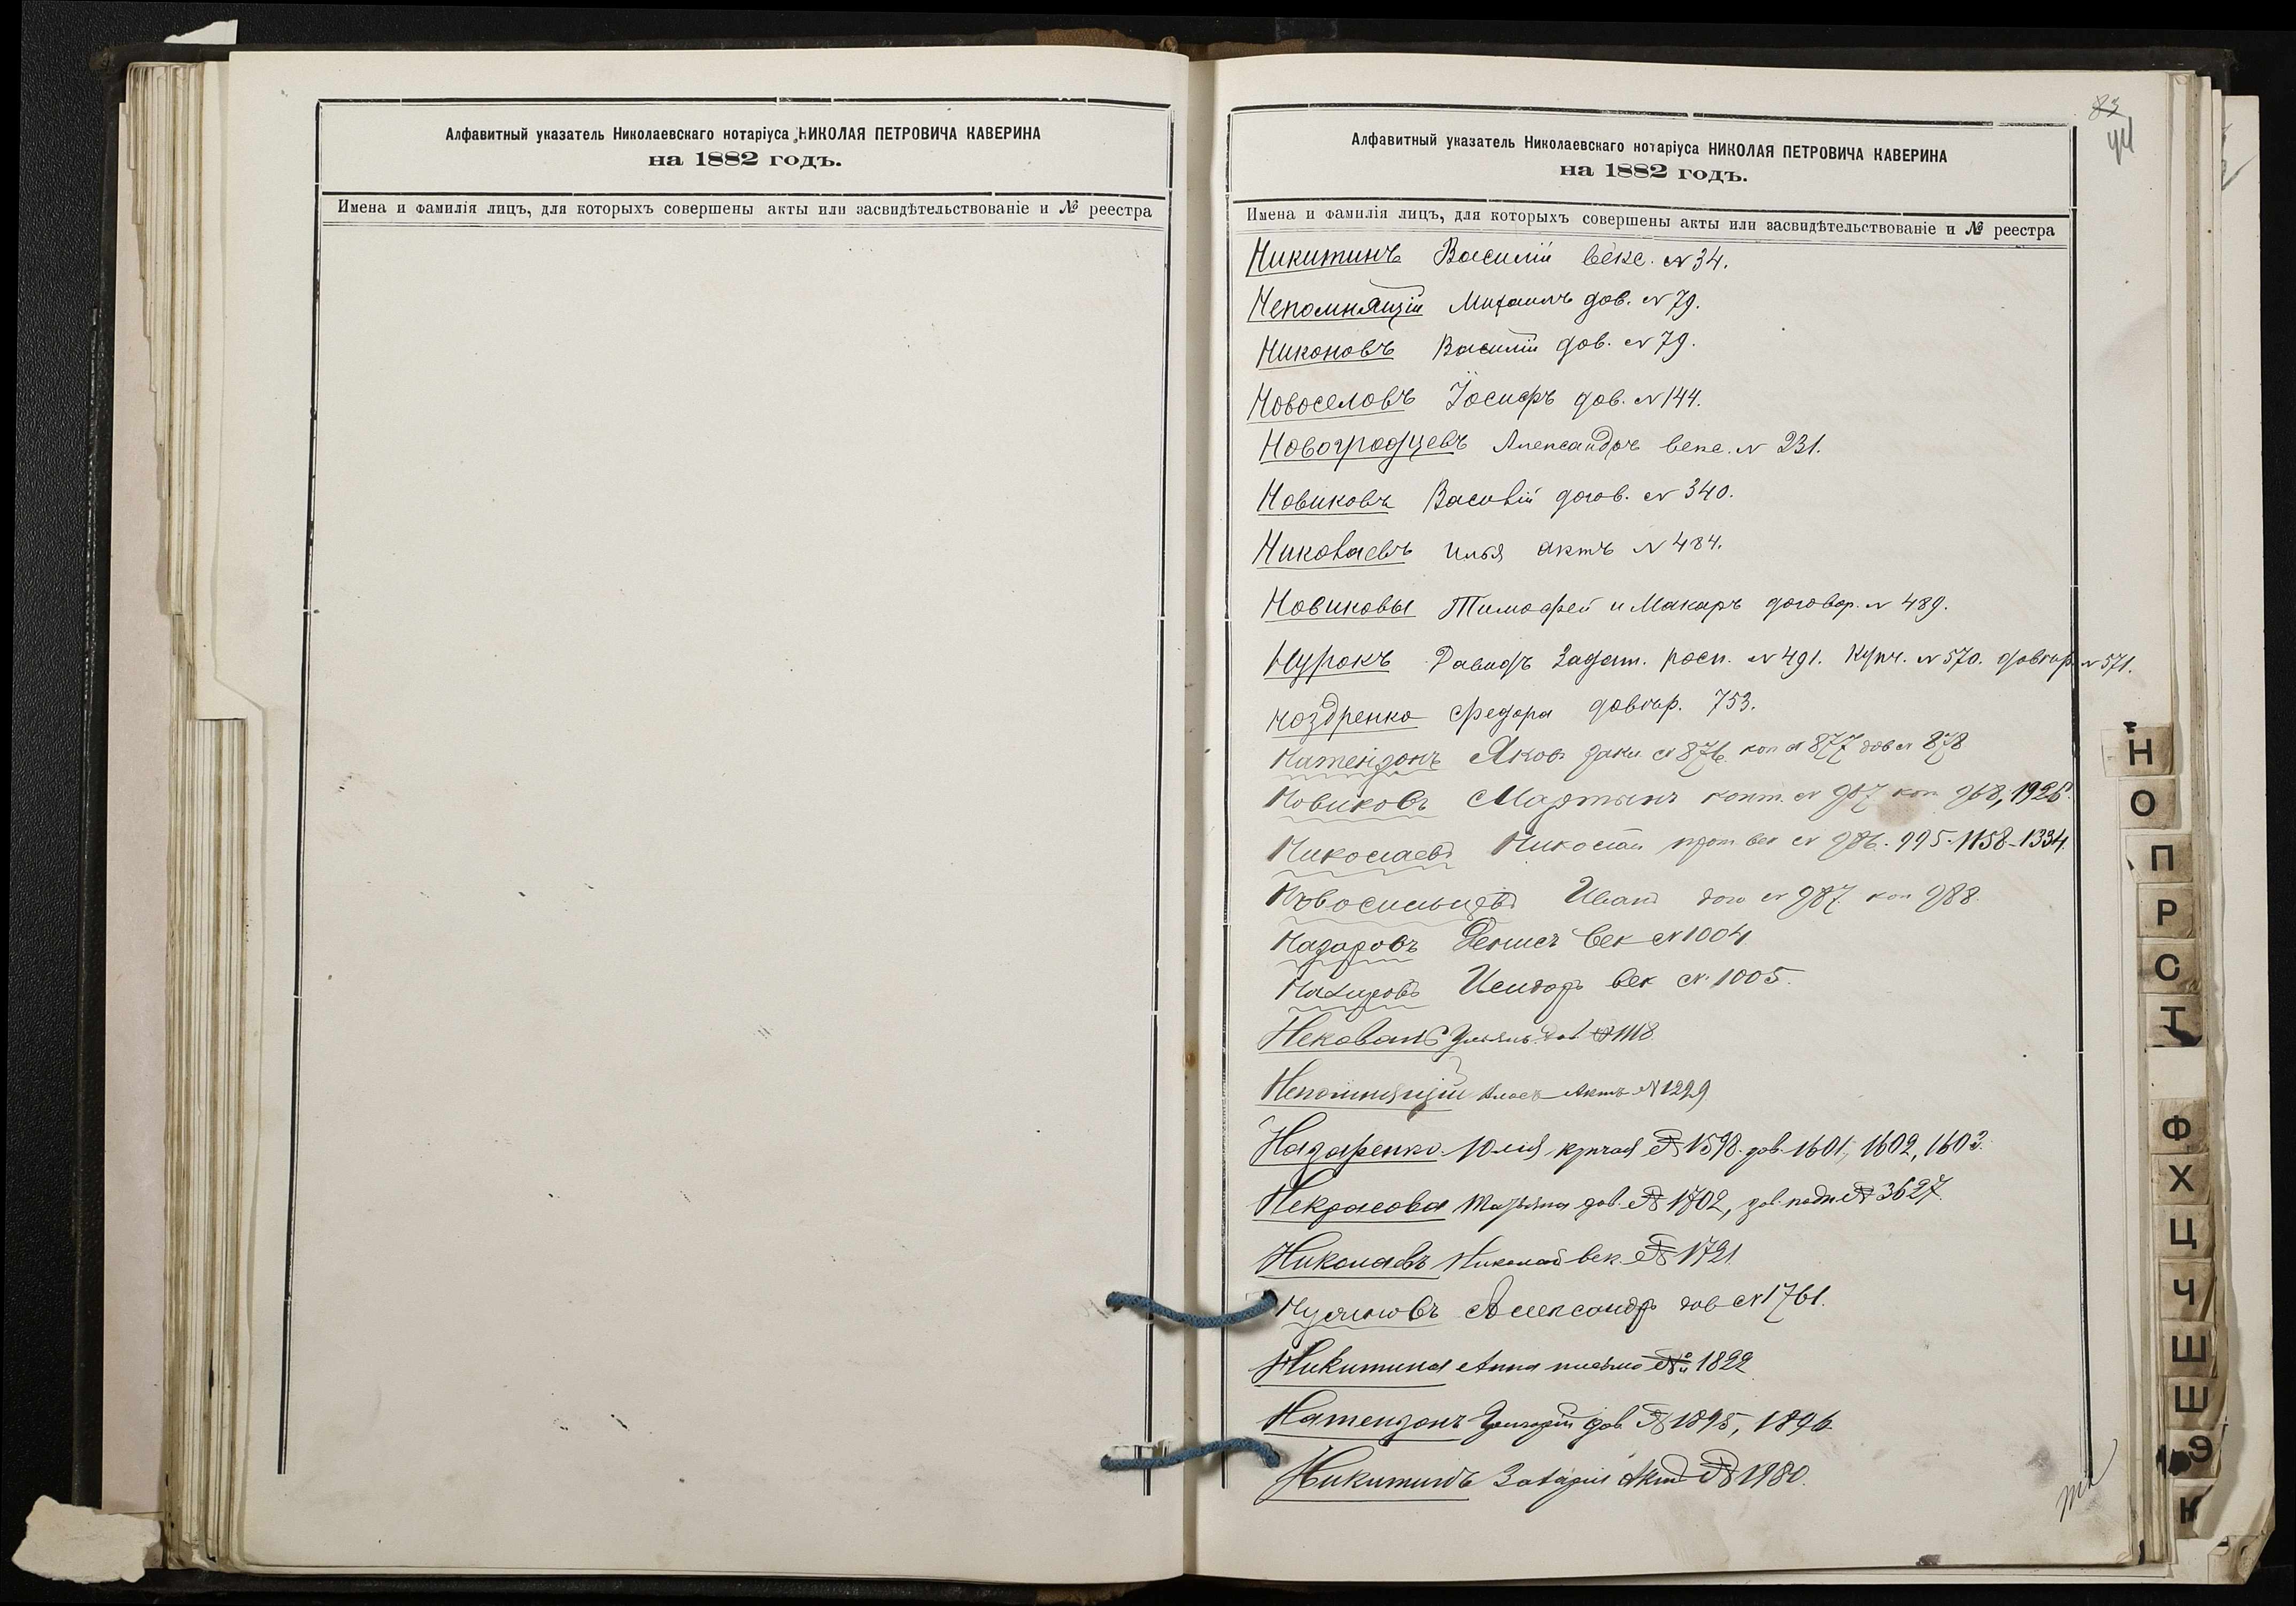 Алфавитный указатель Николаевскаго нотаріуса НИКОЛАЯ ПЕТРОВИЧА КАВЕРИНА
на 1882 годъ.
Имена и фамилія лицъ, для которыхъ совершены акты или засвидѣтельствованіе и № реестра
83
44
Алфавитный указатель Николаевскаго нотаріуса НИКОЛАЯ ПЕТРОВИЧА КАВЕРИНА
на 1882 годъ.
Имена и фамилія лицъ, для которыхъ совершены акты или засвидѣтельствованіе и № реестра
Никитинъ Василій векс. № 34.
Непомнящій Михаилъ дов. № 79.
Никоновъ Василій дов. № 79.
Новоселовъ Іосифъ дов. № 144.
Новоградцевъ Александръ векс. № 231.
Новиковъ Василій догов. № 340.
Николаевъ Илья актъ № 484.
Новиковы Тимофей и Макаръ договор. № 489.
Нурокъ Давидъ Задат. росп. № 491. Купч. № 570. № 571.
Ноздренко Федора довѣр. 753.
Натензонъ Яков № 876. коп № 877 дов № 878
Новиковъ Мартынъ конт. № 967 коп 968, 1925.
Николаевъ Николай прот век № 986. 995. 1158-1334.
Новосильцевъ Иванъ дог № 987 коп 988.
Назаровъ Денисъ век № 1004
Назаровъ Исидоръ век № 1005.
Ульянъ дов. № 1118
Непомнящій Актъ № 1229
Назаренко Юлія купчая № 1598. дов. 1601, 1602, 1603.
Некрасова Татьяна дов. № 1702, дов. подп № 3627.
Николаевъ Николай век. № 1721
Александръ дов № 1761.
Никитина Анна письмо № 1822
Натензонъ Григорій дов № 1895, 1896
Никитинъ Захарій Актъ № 1980.
Н
О
П
Р
С
Т
Ф
Х
Ц
Ч
Ш
Щ
Э